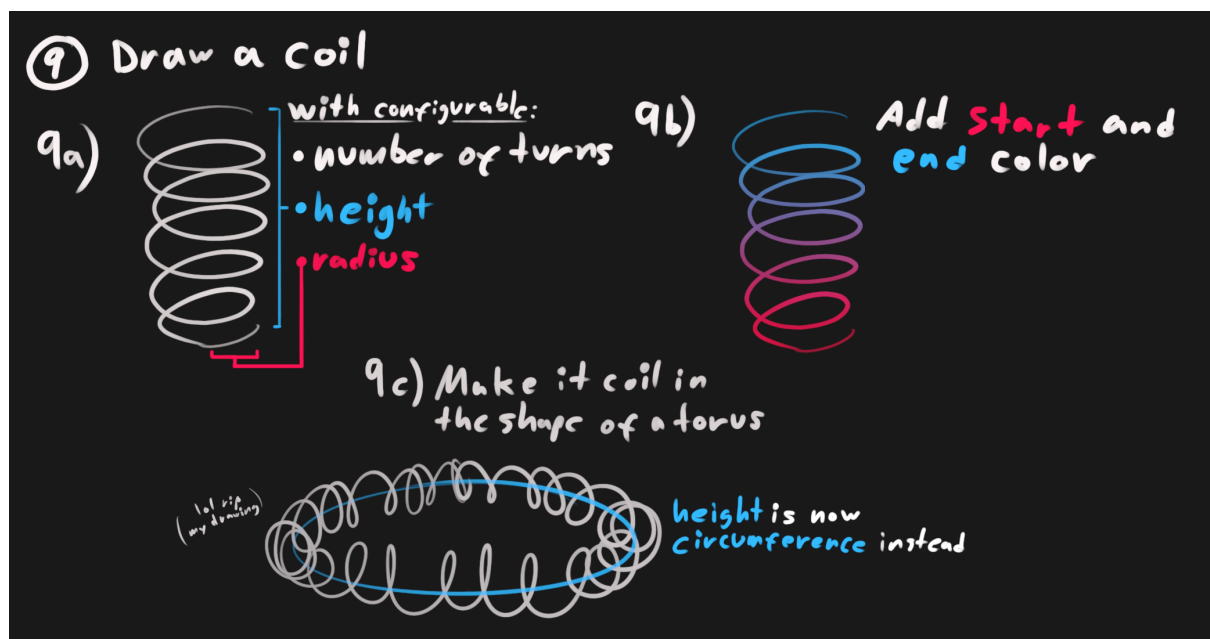 9 Draw a coil
9a)
with configurable:
• number of turns
• height
• radius
9b)
Add start and
end color
9c) Make it coil in
the shape of a torus
(lol rip
my drawing)
height is now
circumference instead